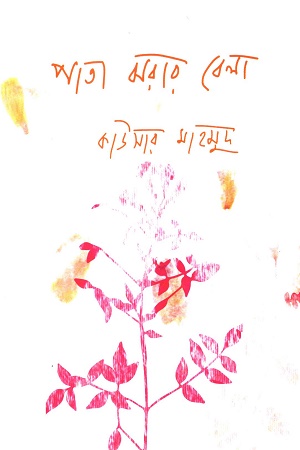 পাতা ঝরার বেলা
কাউসার মাহমুদ